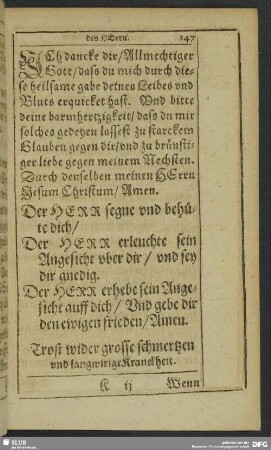 des HErrn. 147
ICh dancke dir/Allmechtiger
Gott/daß du mich durch die-
se heilsame gabe deines Leibes vnd
Bluts erquicket hast. Vnd bitte
deine barmhertzigkeit/daß du mir
solches gedeyen lassest zu starckem
Glauben gegen dir/vnd zu brünsti-
ger liebe gegen meinem Nechsten.
Durch denselben meinen HErrn
Jesum Christum/Amen.
Der HERR segne vnd behü-
te dich/
Der HERR erleuchte sein
Angesicht vber dir/ vnd sey
dir gnedig.
Der HERR erhebe sein Ange-
sicht auff dich/ Vnd gebe dir
den ewigen frieden/Amen.
Trost wider grosse schmertzen
vnd langwirige Kranckheit.
K ij Wenn
SLUB
DFG